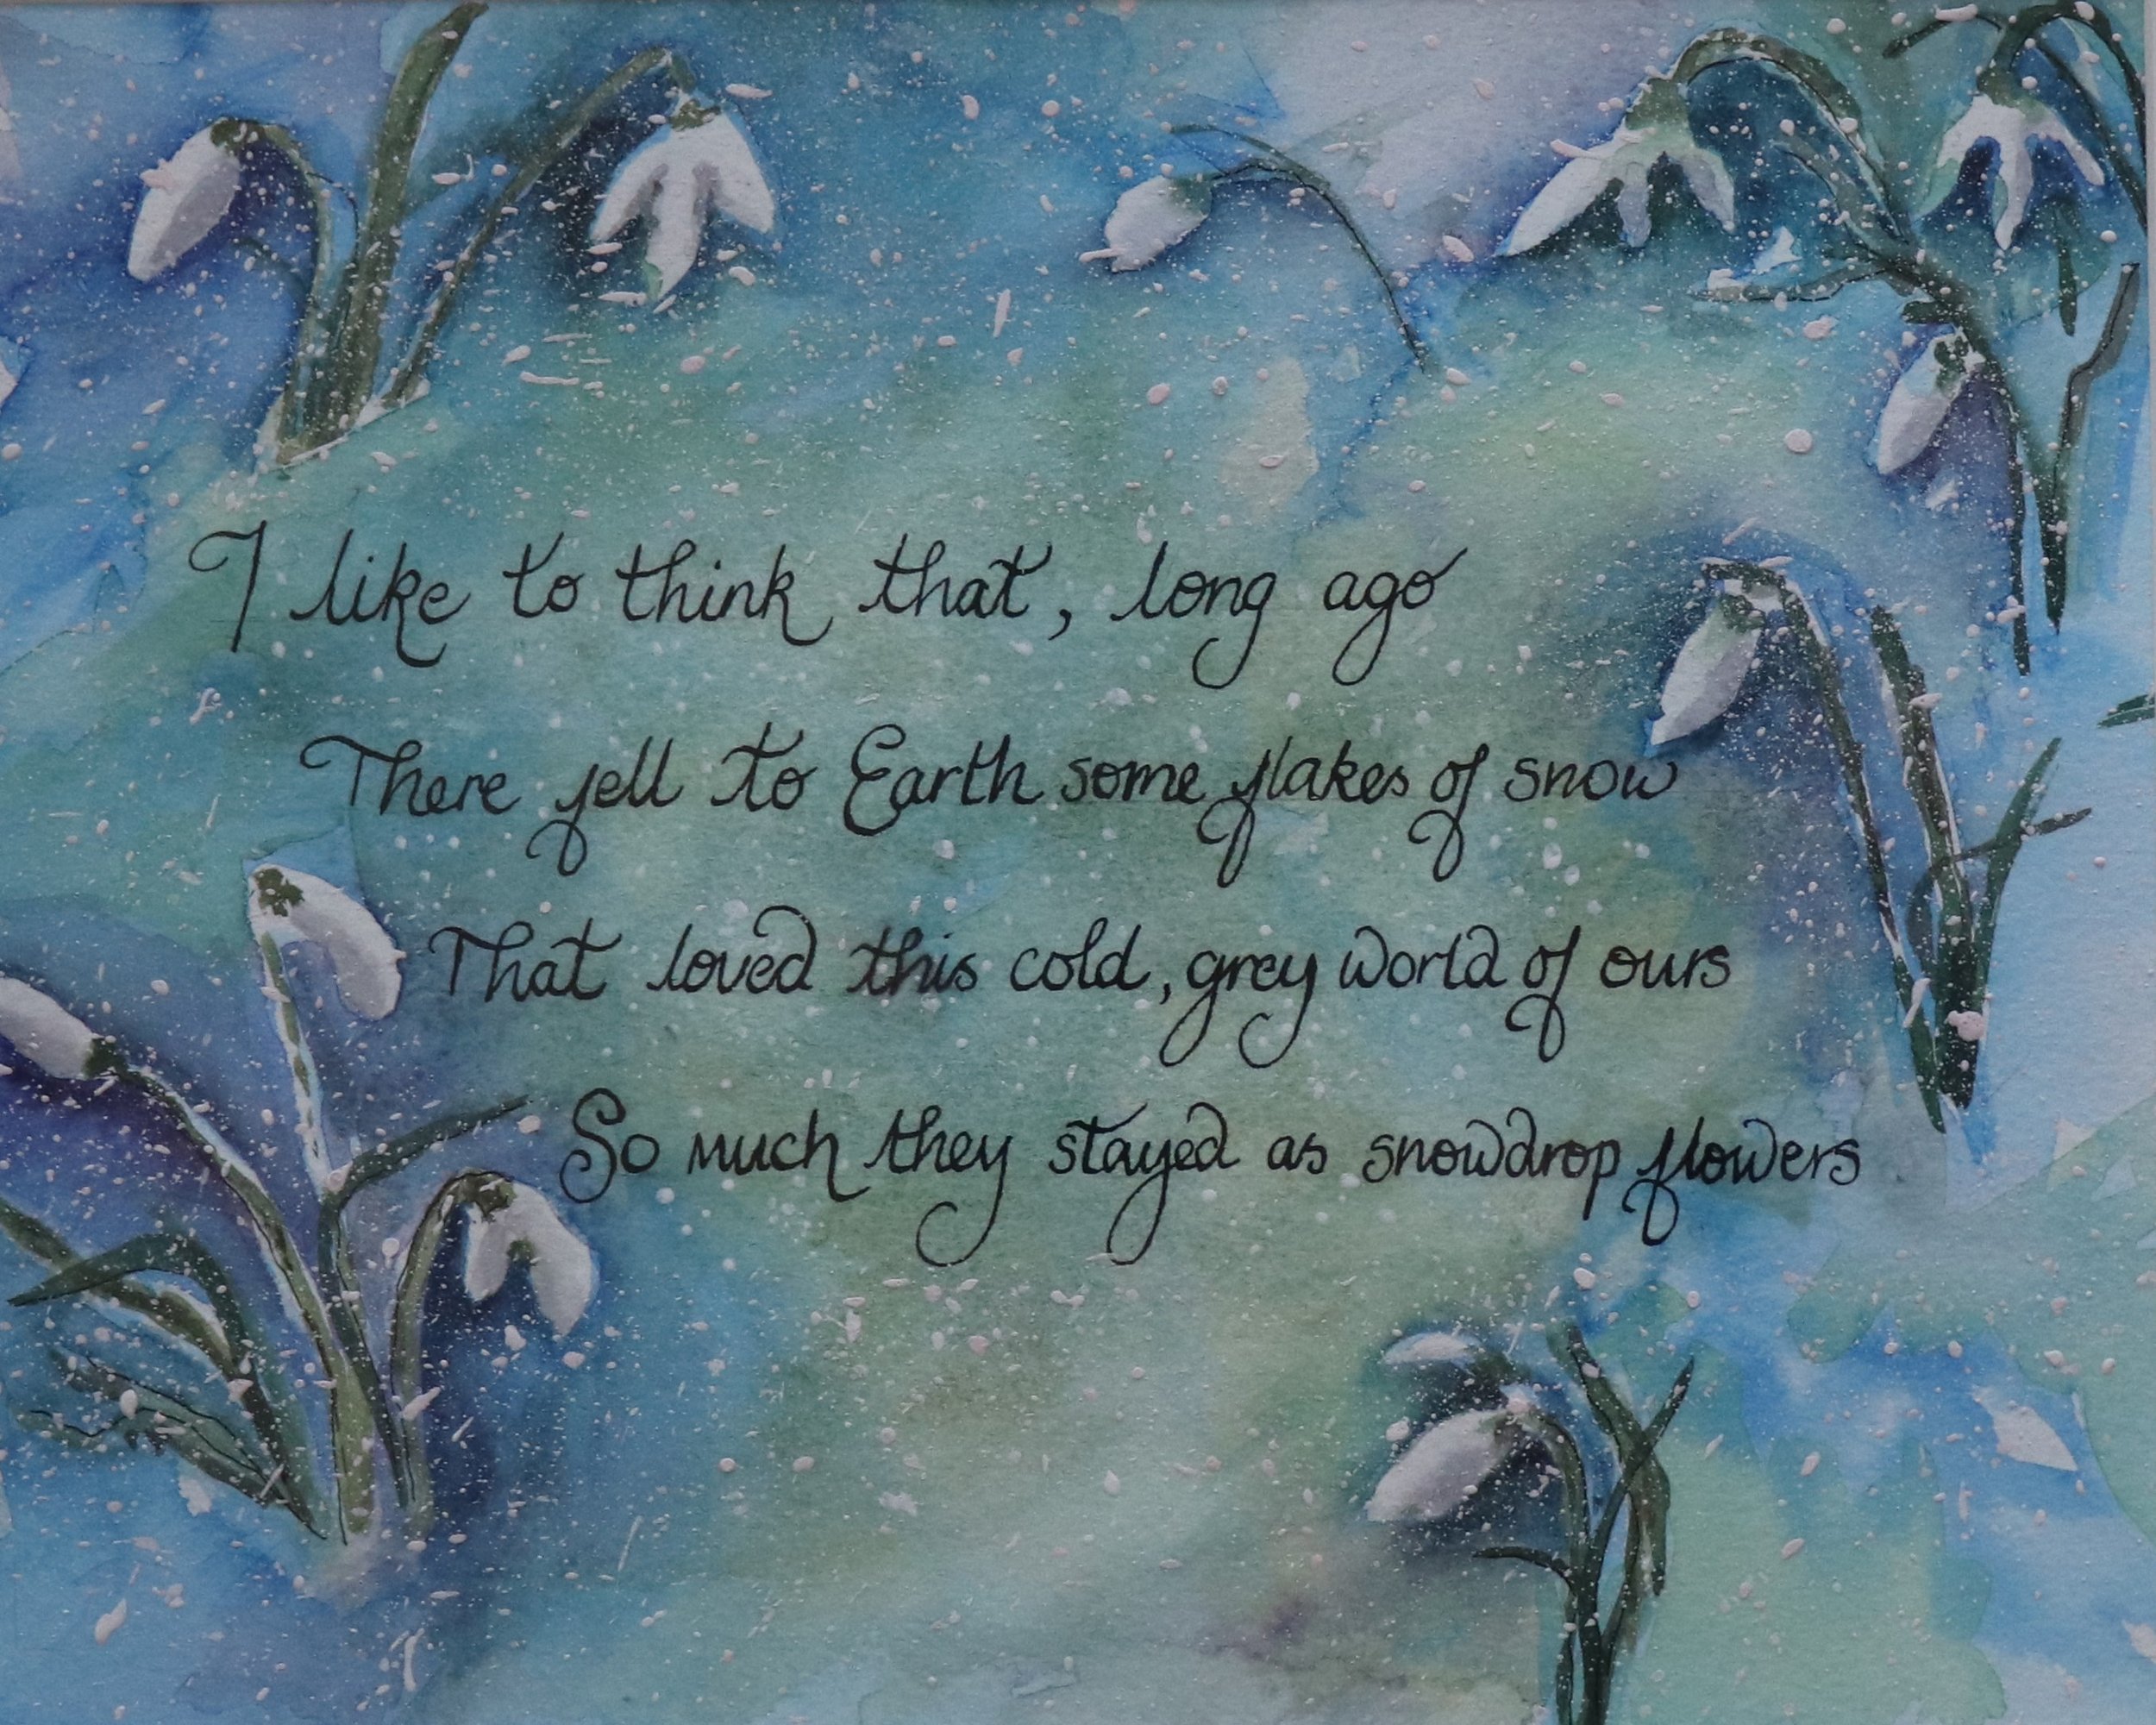 I like to think that, long ago
There fell to Earth some flakes of snow
That loved this cold, grey world of ours
So much they stayed as snowdrop flowers